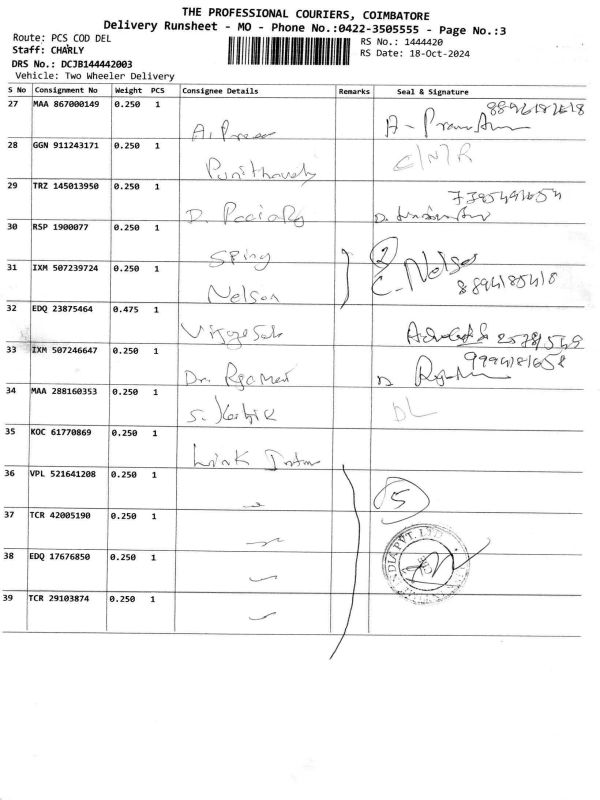 THE PROFESSIONAL COURIERS, COIMBATORE
Delivery Runsheet - MO - Phone No.:0422-3505555 - Page No.:3
Route: PCS COD DEL RS No.: 1444420
Staff: CHARLY RS Date: 18-Oct-2024
DRS No.: DCJB144442003
Vehicle: Two Wheeler Delivery
S No Consignment No Weight PCS Consignee Details Remarks Seal & Signature
27 MAA 867000149 0.250 1
A.
28 GGN 911243171 0.250 1
29 TRZ 145013950 0.250 1
D.
30 RSP 1900077 0.250 1
Spiny 2
31 IXM 507239724 0.250 1 C. Nelson
Nelson
32 EDQ 23875464 0.475 1
33 IXM 507246647 0.250 1
Dr.
34 MAA 288160353 0.250 1
S. Kartik DL
35 KOC 61770869 0.250 1
Link
36 VPL 521641208 0.250 1
5
37 TCR 42005190 0.250 1
38 EDQ 17676850 0.250 1
39 TCR 29103874 0.250 1